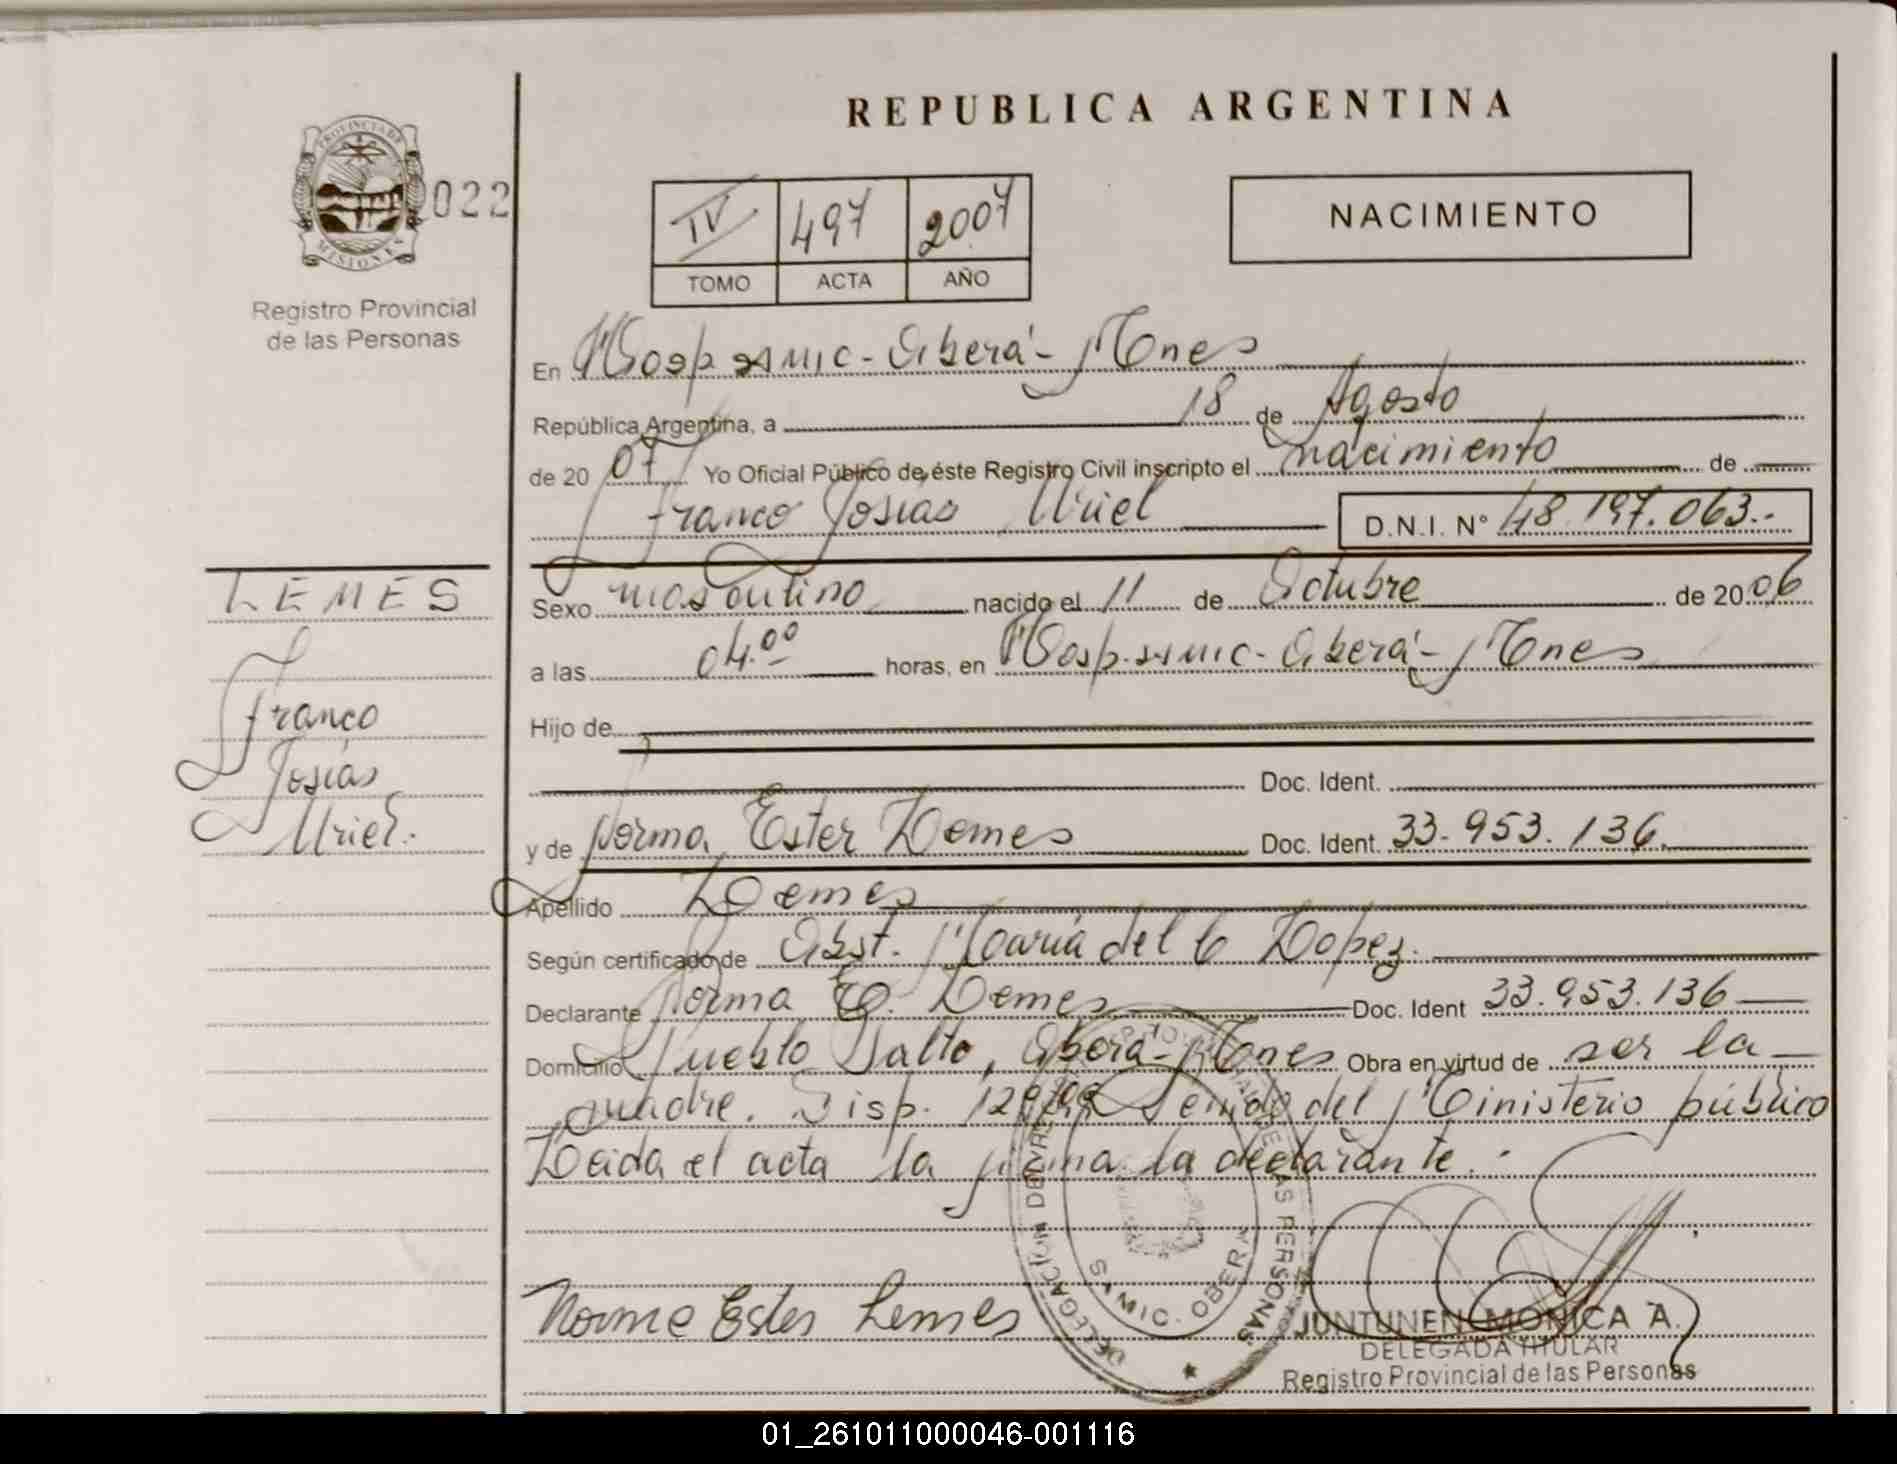 REPUBLICA ARGENTINA
PROVINCIA DE
MISIONES
022
Registro Provincial
de las Personas
IV 497 2007
TOMO ACTA AÑO
NACIMIENTO
En Hosp. SAMIC - Oberá - Mnes
República Argentina, a 18 de Agosto
de 2007 Yo Oficial Público de éste Registro Civil inscripto el nacimiento de
Franco Josías Uriel D.N.I. N° 48.197.063.-
LEMES
Franco
Josías
Uriel.
Sexo masculino nacido el 11 de Octubre de 2006
a las 04.00 horas, en Hosp. SAMIC - Oberá - Mnes
Hijo de
Doc. Ident.
y de Norma Ester Lemes Doc. Ident. 33.953.136.
Apellido Lemes
Según certificado de Obst. María del C Lopez.
Declarante Norma E. Lemes Doc. Ident 33.953.136
Domicilio Pueblo Salto, Oberá - Mnes Obra en virtud de ser la
madre. Disp. del Ministerio público
Leida el acta la firma la declarante.-
Norma Ester Lemes
DELEGACIÓN DE LAS PERSONAS
SAMIC. OBERA
JUNTUNEN MONICA A.
DELEGADA TITULAR
Registro Provincial de las Personas
01_261011000046-001116